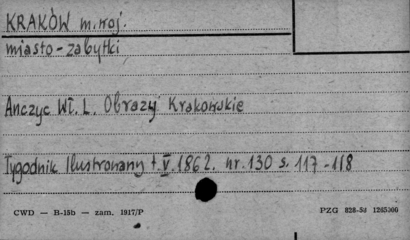 KRAKÓW m. woj.
miasto-zabytki
Anczyc Wł. L. Obrazy Krakowskie
Tygodnik Ilustrowany t. V. 1862. nr. 130 s. 117-118
CWD — B-15b — zam. 1917/P PZG 828-53 1265000